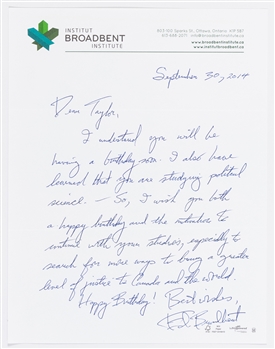 INSTITUT
BROADBENT
INSTITUTE
Sparks St, Ottawa, Ontario
www.broadbentinstitute.ca
www.institutbroadbent.ca
September 30, 2014
Dear Taylor,
I understand you will be
having a birthday soon. I also have
learned that you are studying political
science. – So, I wish you both
a happy birthday and the
continue with your studies, especially to
search for more ways to bring a greater
level of justice to Canada and the world.
Happy Birthday! Best wishes,
Ed Broadbent